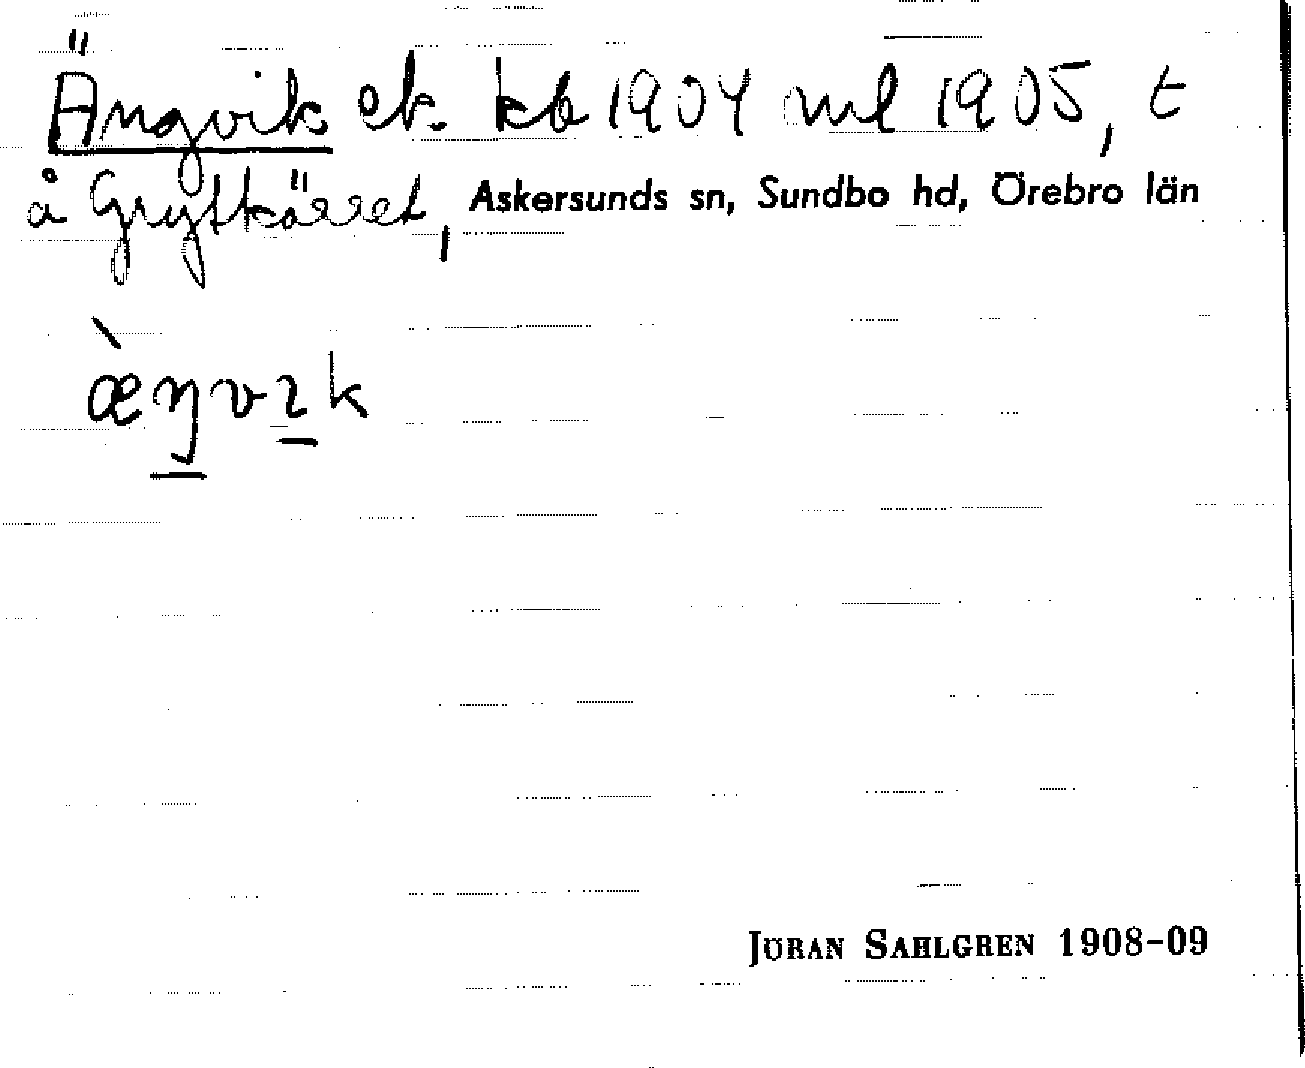 Ängvik ek. kb 1904 ml 1905, t
å Grytkärret, Askersunds sn, Sundbo hd, Örebro län
æ̀ŋvɩk
JÖRAN SAHLGREN 1908-09